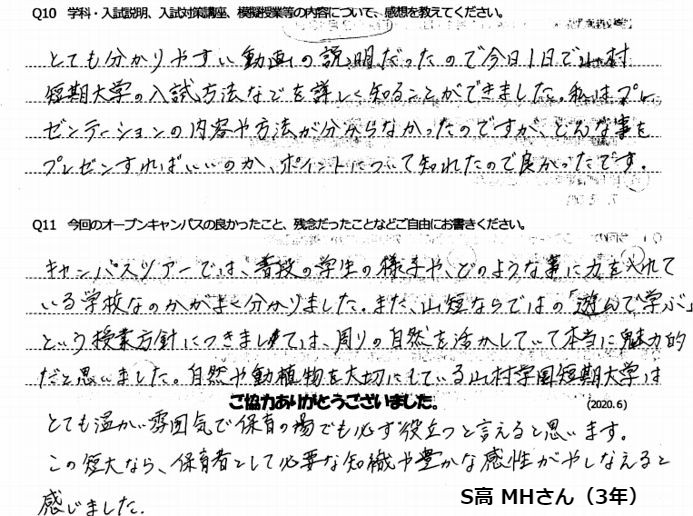 Q10 学科・入試説明、入試対策講座、模擬授業等の内容について、感想を教えてください。
とても分かりやすい動画の説明だったので今日1日で山村
短期大学の入試方法などを詳しく知ることができました。私はプレ
ゼンテーションの内容や方法が分からなかったのですが、どんな事を
プレゼンすればいいのか、ポイントについて知れたので良かったです。
Q11 今回のオープンキャンパスの良かったこと、残念だったことなどご自由にお書きください。
キャンパスツアーでは、普段の学生の様子や、どのような事に力を入れて
いる学校なのかがよく分かりました。また、山短ならではの「遊んで学ぶ」
という授業方針につきましては、周りの自然を活かしていて本当に魅力的
だと思いました。自然や動植物を大切にしている山村学園短期大学は
ご協力ありがとうございました。
(2020.6)
とても温かい雰囲気で保育の場でも必ず役立つと言えると思います。
この短大なら、保育者として必要な知識や豊かな感性がやしなえると
感じました.
S高 MHさん（3年）